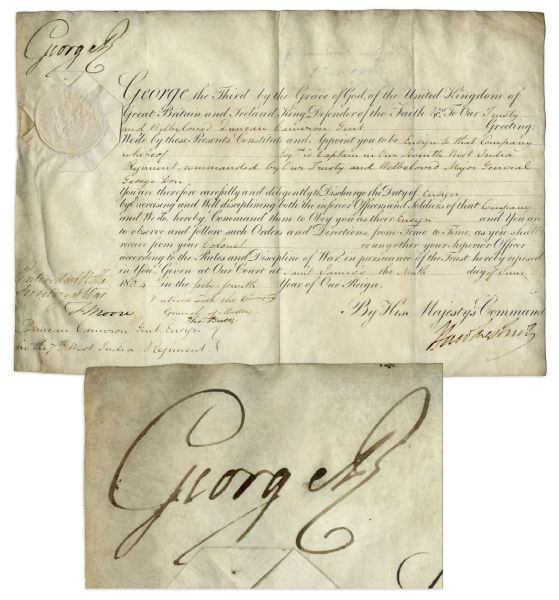 George R
George the Third by the Grace of God, of the United Kingdom of
Great Britain and Ireland King, Defender of the Faith &c. To Our Trusty
and Welbeloved Duncan Cameron Gent Greeting
We do by these Presents Constitute and Appoint you to be Ensign to that Company
whereof Esqre. is Captain in Our Seventh West India
Regiment, commanded by Our Trusty and Welbeloved Major General
George Don
You are therefore carefully and diligently to Discharge the Duty of Ensign
by Exercising and Well disciplining both the inferior Officers and Soldiers of that Company
and We do hereby Command them to Obey you as their Ensign and You are
to observe and follow such Orders and Directions, from Time to Time, as you shall
receive from your Colonel or any other your superior Officer
according to the Rules and Discipline of War, in pursuance of the Trust hereby reposed
in You. Given at Our Court at Saint James's the Ninth day of June
1804 in the forty fourth Year of Our Reign.
Entered with the
Secretary at War
F Moore
Entered with the
General of
By His Majesty's Command
Duncan Cameron Gent. Ensign
in the 7th West India Regiment
George R